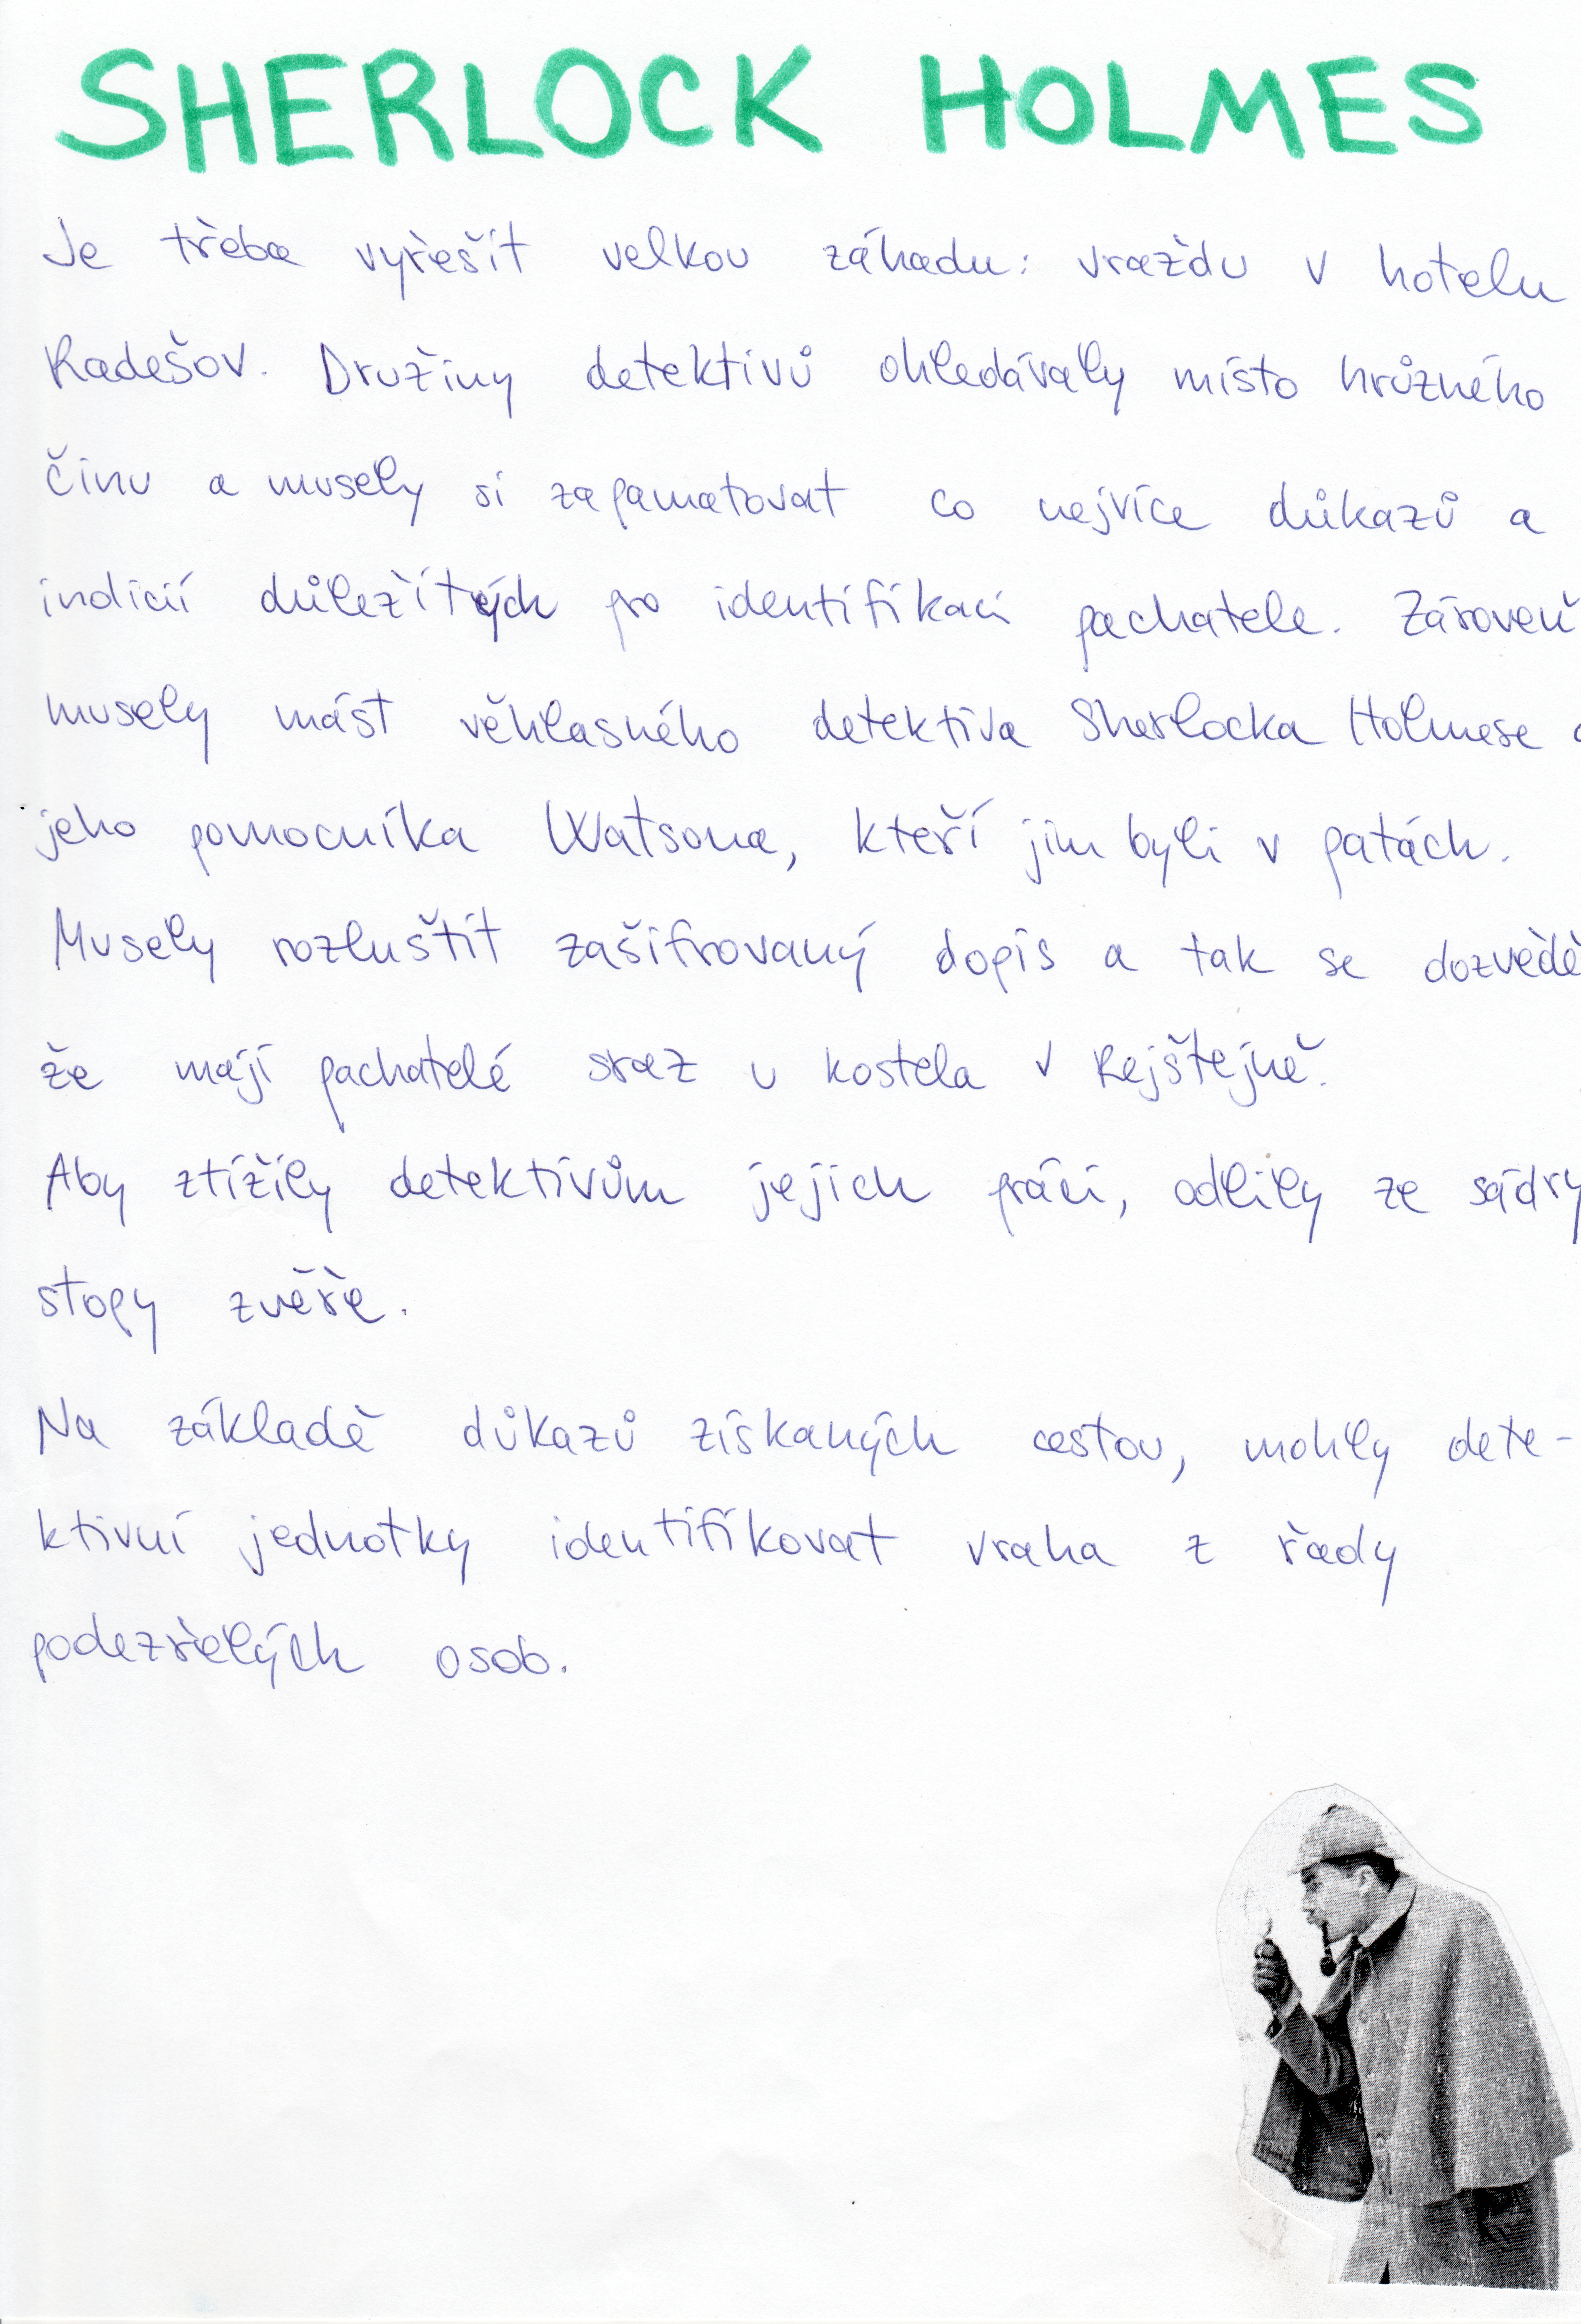 SHERLOCK HOLMES
Je třeba vyřešit velkou záhadu: vraždu v hotelu
Radešov. Družiny detektivů ohledávaly místo hrůzného
činu a musely si zapamatovat co nejvíce důkazů a
indicií důležitých pro identifikaci pachatele. Zároveň
musely mást věhlasného detektiva Sherlocka Holmese
jeho pomocníka Watsona, kteří jim byli v patách.
Musely rozluštit zašifrovaný dopis a tak se dozvědě
že mají pachatelé sraz u kostela v Rejštejně.
Aby ztížily detektivům jejich práci, odlily ze sádry
stopy zvěře.
Na základě důkazů získaných cestou, mohly dete-
ktivní jednotky identifikovat vraha z řady
podezřelých osob.